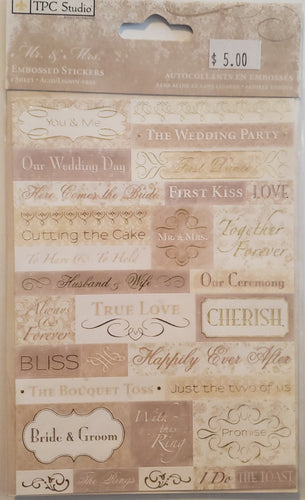 TPC Studio
Mr. & Mrs.
$ 5.00
Embossed Stickers
Autocollants en Embosses
1 Sheet • Acid/Lignin-free
You & Me
• The Wedding Party •
Our Wedding Day
First Dance
Here Comes the Bride
First Kiss
LOVE
Cutting the Cake
Mr. & Mrs.
Together
Forever
To Have & To Hold
Husband & Wife
Our Ceremony
Always
&
Forever
True Love
CHERISH
BLISS
Happily Ever After
• The Bouquet Toss •
Just the two of us
Bride & Groom
With
this
Ring
Our
Promise
The Rings
I Do
The Toast